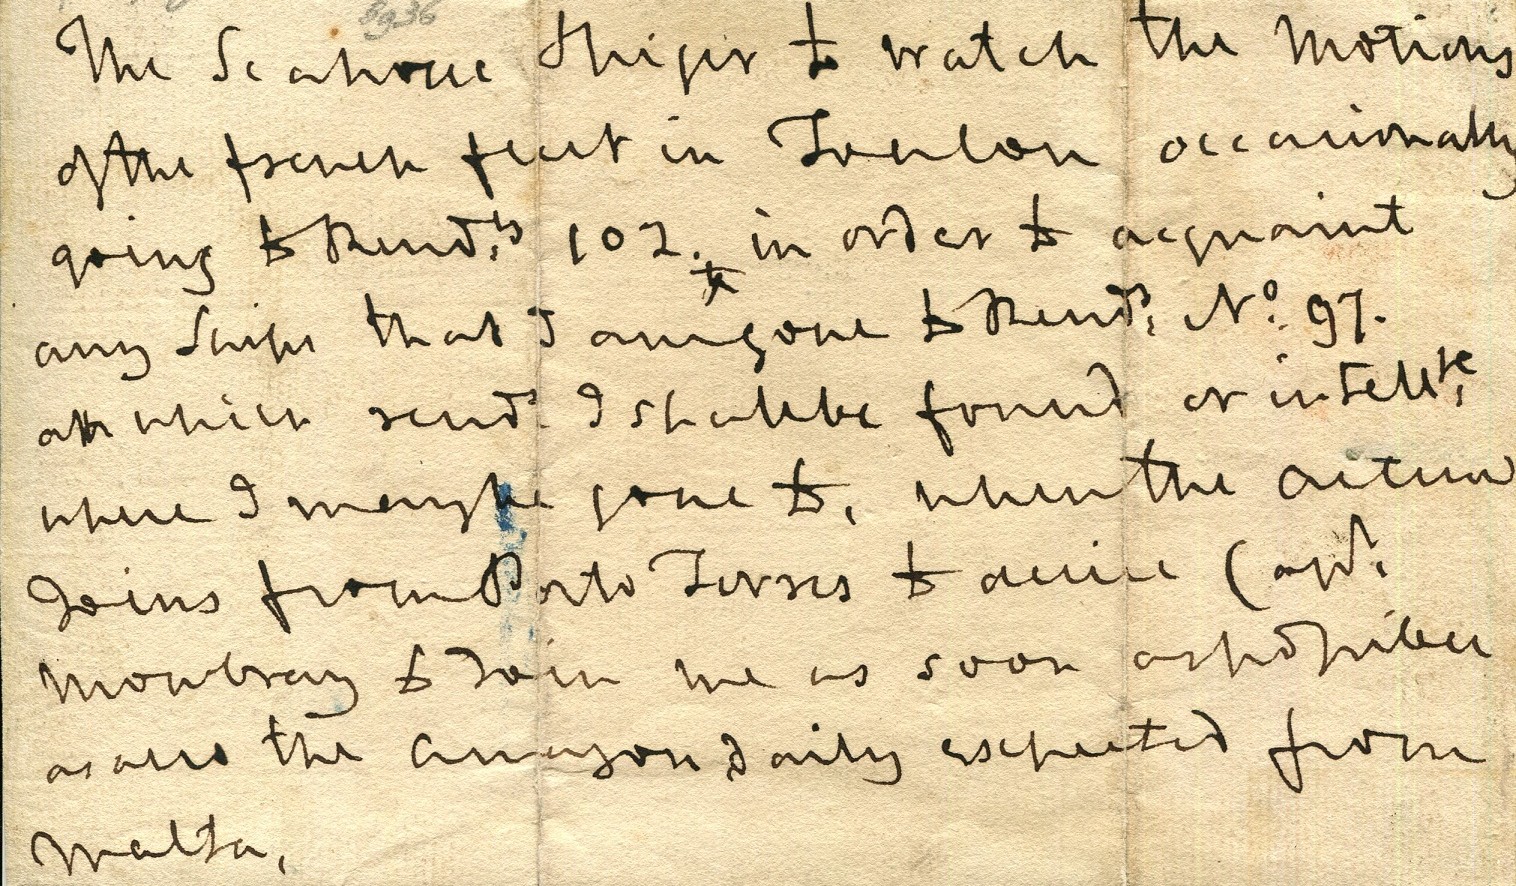 The Seahorse & Niger to watch the Motions
of the french fleet in Toulon occasionally
going to Rendzs. 102. in order to acquaint
any Ships that I am gone to Rends. No. 97.
at which rends. I shall be found or intelce.
where I may be gone to, when the Active
Joins from Porto Torres to desire Capt.
Mowbray to Join me as soon as possible
as also the Amazon daily expected from
Malta,